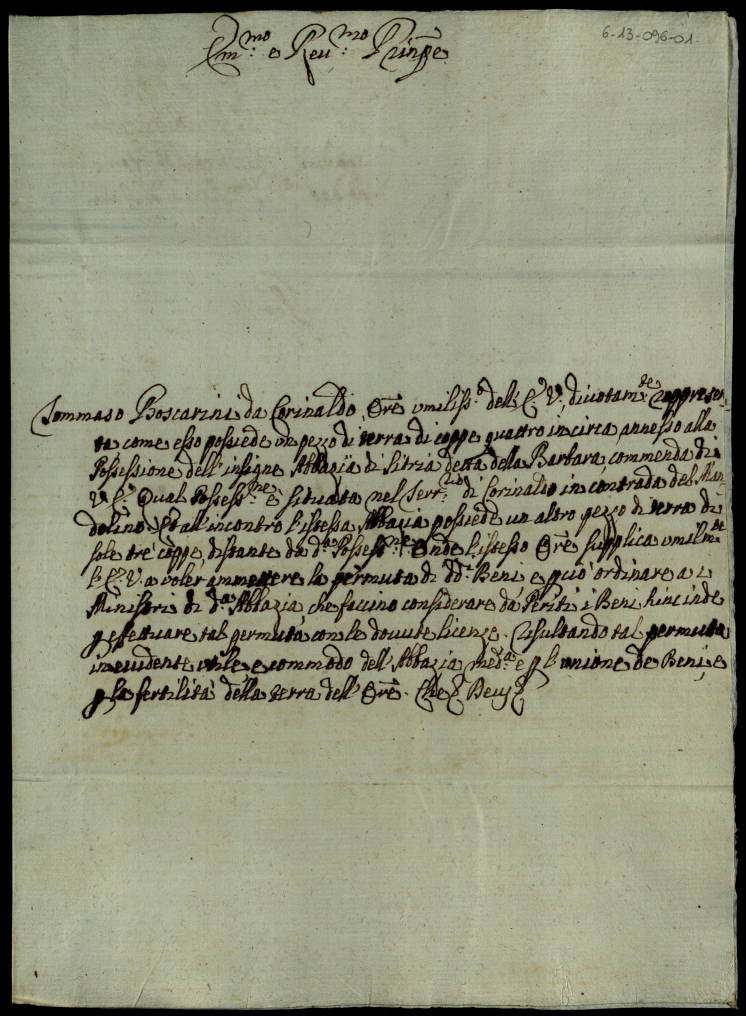 6-13-096-01.
Em.mo e Reu.mo Prinp̄e
Tommaso Boscarini da Corinaldo Ōre vmiliss.o dell'E. V., diuotam.te rappresen-
ta come esso possiede un pezzo di terra di coppe quattro in circa annesso alla
Possessione dell'insigne Abbazia di Sitria detta della Barbara, commenda di
V. E. Qual Possess.ne è situata nel Terr.rio di Corinaldo in contrada del Man-
dolino. Et all'incontro l'istessa Abbazia possiede un altro pezzo di terra di
sole trè coppe, distante da d.a Possess.ne Onde l'istesso Ōre supplica vmilm.te
l'E. V. a voler ammettere la permuta di dd.i Beni e p ciò ordinare a i
Ministri di d.a Abbazia, che faccino considerare da Periti i Beni hinc inde
p effettuare tal permuta con le douute licenze. Risultando tal permuta
in euidente vtile e commodo dell'Abbazia med.a e p l'unione de Beni, e
p la fertilità della terra dell'Ōre. Che